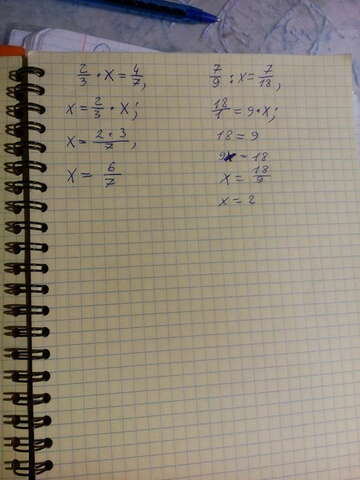 2/3 · x = 4/7,
x = 2/3 · x;
x = 2·3/7,
x = 6/7
7/9 : x = 7/18,
18/1 = 9·x;
18 = 9
9x = 18
x = 18/9
x = 2